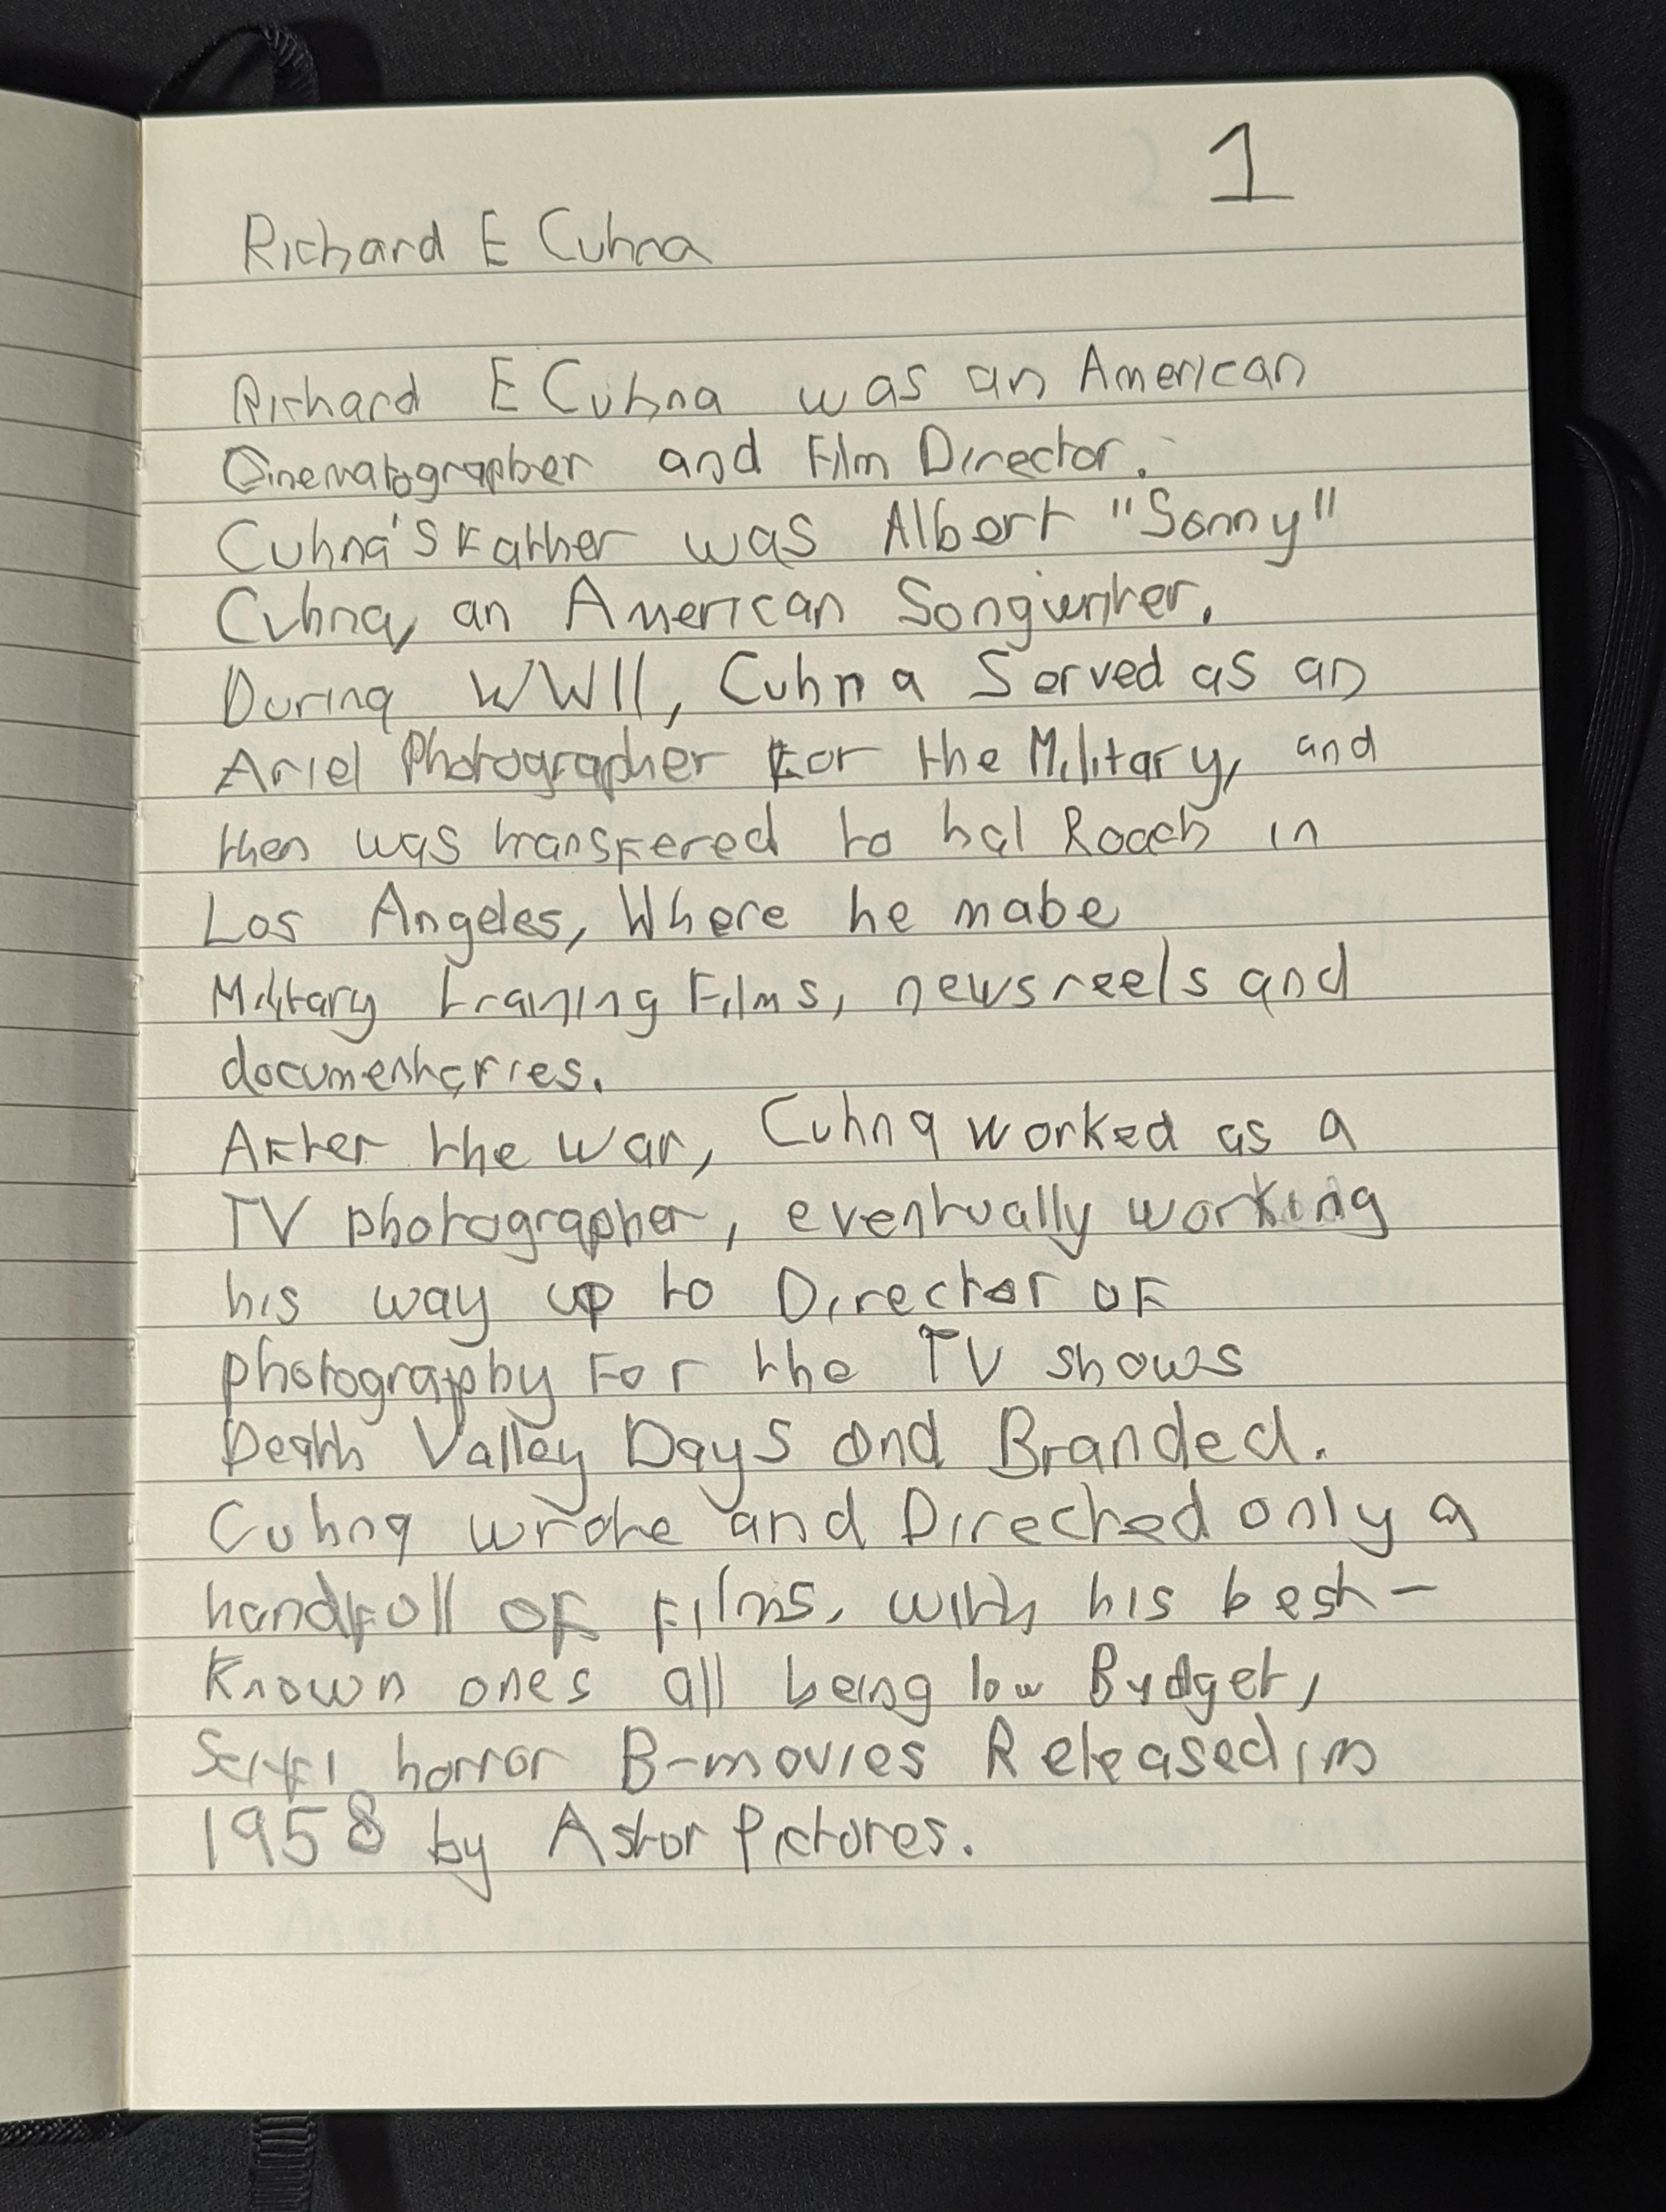 1
Richard E Cuhna
Richard E Cuhna was an American
Cinematographer and Film Director.
Cuhna's Father was Albert "Sonny"
Cuhna, an American Songwriter.
During WWII, Cuhna Served as an
Ariel Photographer For the Military, and
then was transfered to hal Roach in
Los Angeles, Where he mabe
Military training Films, newsreels and
documentaries.
After the war, Cuhna worked as a
TV photographer, eventually working
his way up to Director of
photography For the TV shows
Death Valley Days and Branded.
Cuhna wrote and Directed only a
handfull of films, with his best-
Known ones all being low Budget,
Scifi horror B-movies Released in
1958 by Astor Pictures.